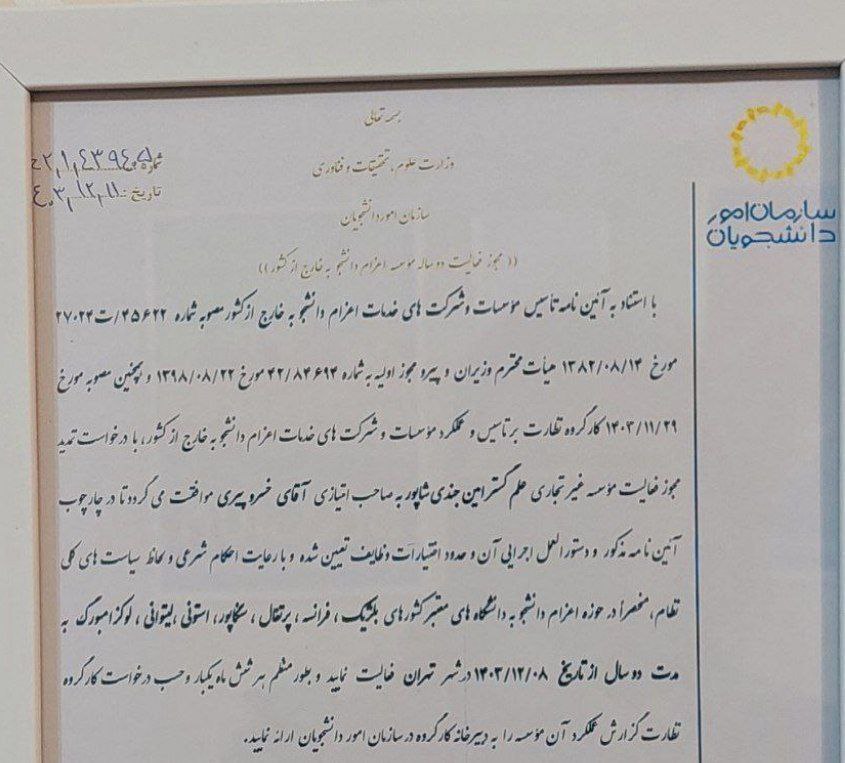 بسمه تعالی
وزارت علوم، تحقیقات و فناوری
سازمان امور دانشجویان
((مجوز فعالیت دو ساله مؤسسه اعزام دانشجو به خارج از کشور))
سازمان امور
دانشجویان
شماره:
تاریخ: ۴۰۳,۱۲,۱۱
با استناد به آئین نامه تأسیس مؤسسات و شرکت های خدمات اعزام دانشجو به خارج از کشور مصوبه شماره ۴۵۶۲۲/ت۲۷۰۲۴
مورخ ۱۳۸۲/۰۸/۱۴ هیأت محترم وزیران و پیرو مجوز اولیه به شماره ۴۲/۸۴۶۹۴ مورخ ۱۳۹۸/۰۸/۲۲ و همچنین مصوبه مورخ
۱۴۰۳/۱۱/۲۹ کارگروه نظارت بر تاسیس و عملکرد مؤسسات و شرکت های خدمات اعزام دانشجو به خارج از کشور، با درخواست تمدید
مجوز فعالیت مؤسسه غیر تجاری علم گستر امین جندی شاپور به صاحب امتیازی آقای خسرو پیری موافقت می گردد تا در چارچوب
آئین نامه مذکور و دستورالعمل اجرایی آن و حدود اختیارات وظایف تعیین شده و با رعایت احکام شرعی و لحاظ سیاست های کلی
نظام، منحصراً در حوزه اعزام دانشجو به دانشگاه های معتبر کشورهای بلژیک، فرانسه، پرتغال، سنگاپور، استونی، لیتوانی، لوکزامبورگ به
مدت دو سال از تاریخ ۱۴۰۳/۱۲/۰۸ در شهر تهران فعالیت نماید و بطور منظم هر شش ماه یکبار و حسب درخواست کارگروه
نظارت گزارش عملکرد آن مؤسسه را به دبیرخانه کارگروه در سازمان امور دانشجویان ارائه نمایید.